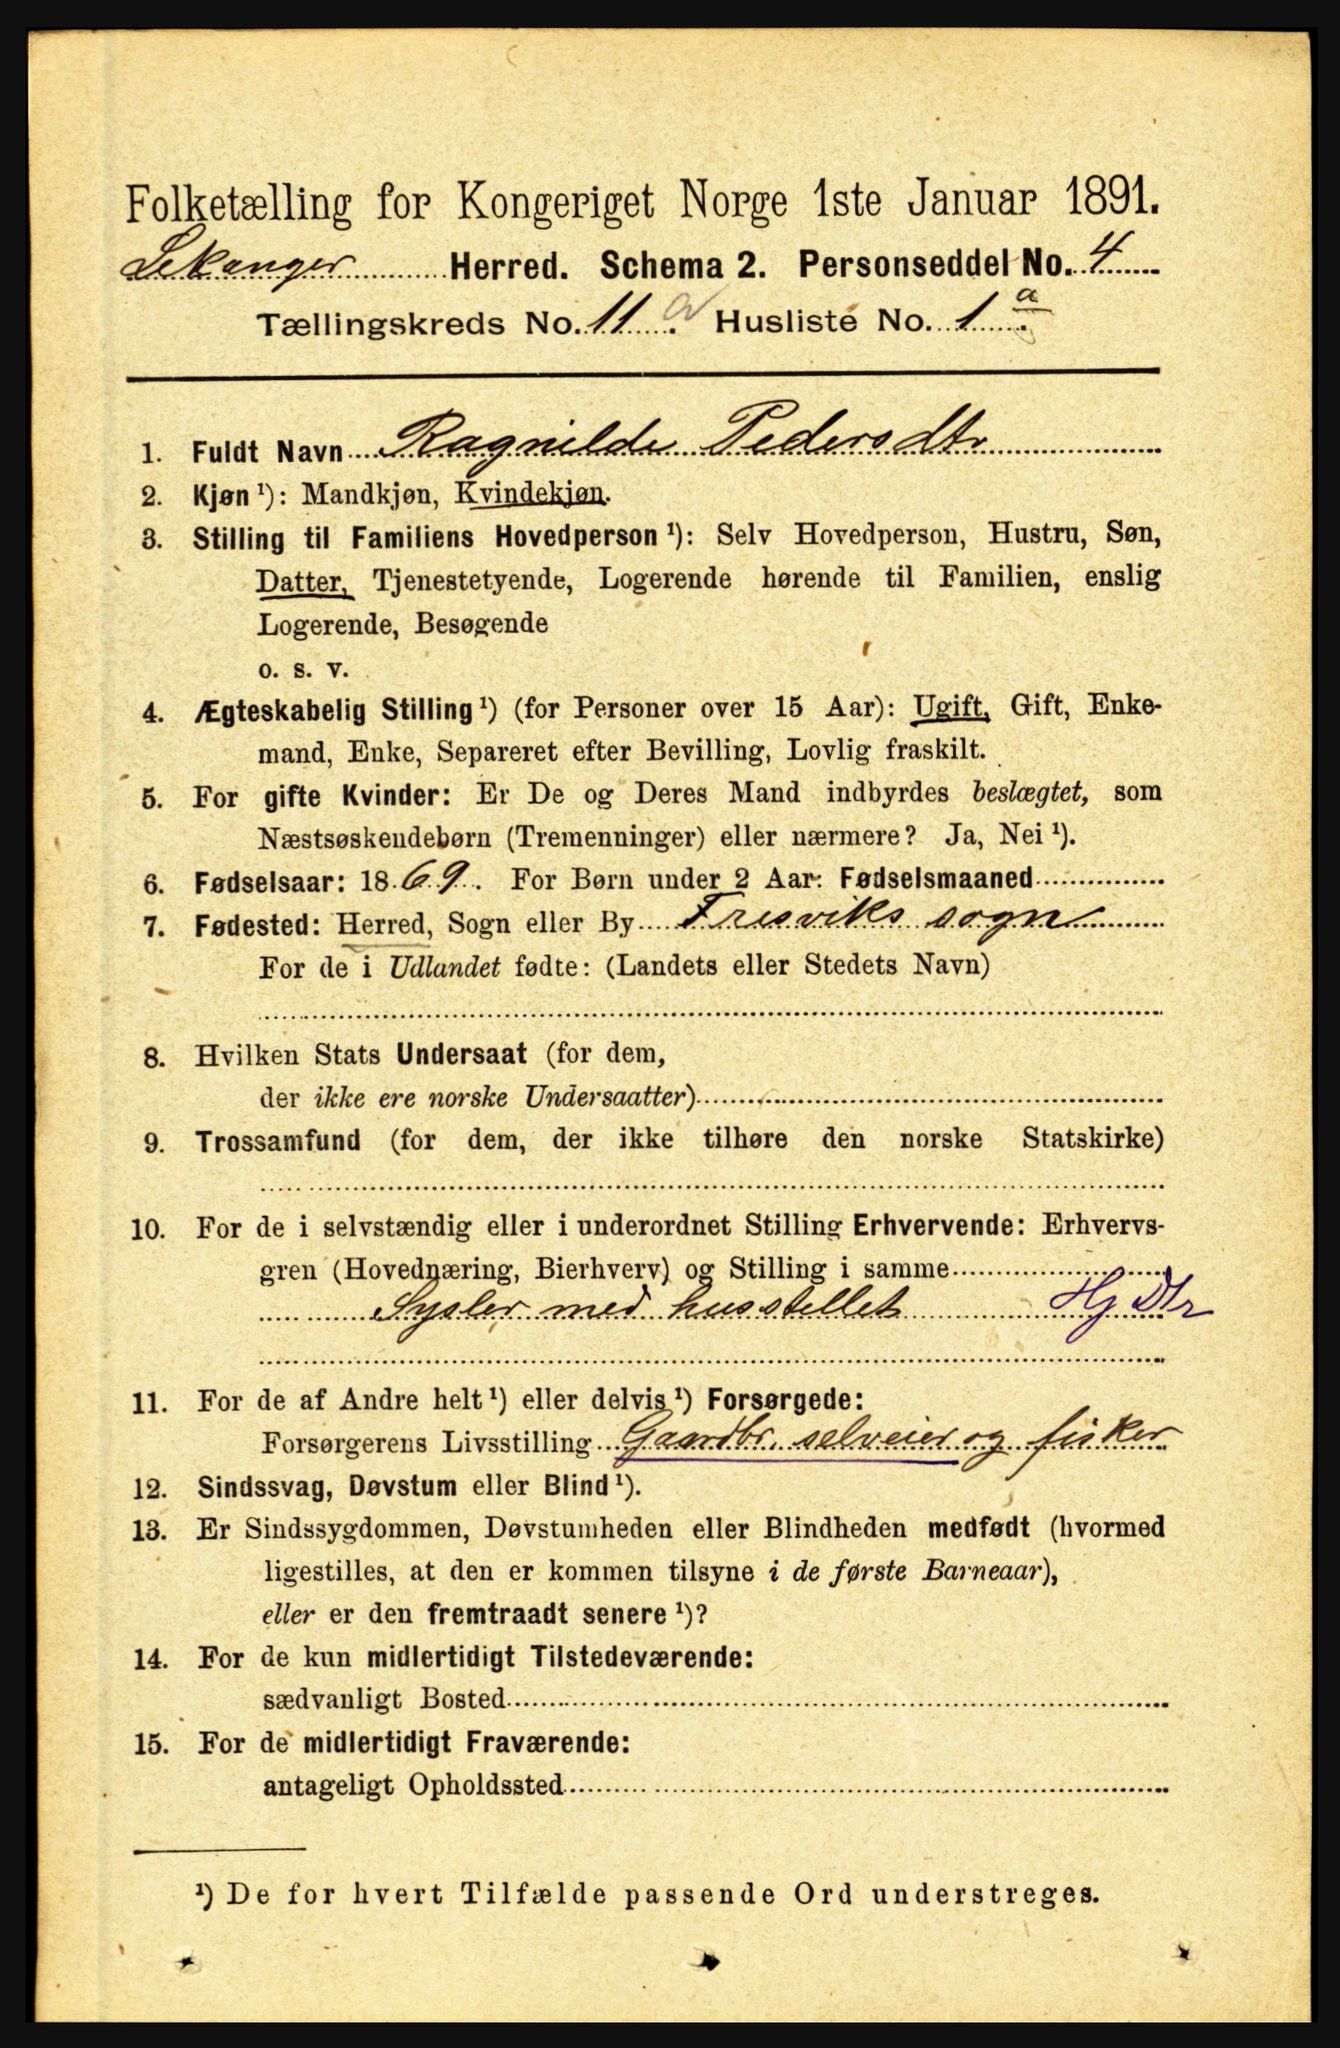 Folketælling for Kongeriget Norge 1ste Januar 1891.
Lekanger Herred. Schema 2. Personseddel No. 4
Tællingskreds No. 11 a. Husliste No. 1 a.
1. Fuldt Navn Ragnilde Pedersdtr
2. Kjøn ¹): Mandkjøn, Kvindekjøn.
3. Stilling til Familiens Hovedperson ¹): Selv Hovedperson, Hustru, Søn,
Datter, Tjenestetyende, Logerende hørende til Familien, enslig
Logerende, Besøgende
o. s. v.
4. Ægteskabelig Stilling ¹) (for Personer over 15 Aar): Ugift, Gift, Enke-
mand, Enke, Separeret efter Bevilling, Lovlig fraskilt.
5. For gifte Kvinder: Er De og Deres Mand indbyrdes beslægtet, som
Næstsøskendebørn (Tremenninger) eller nærmere? Ja, Nei ¹).
6. Fødselsaar: 1869. For Børn under 2 Aar: Fødselsmaaned
7. Fødested: Herred, Sogn eller By Fresviks sogn
For de i Udlandet fødte: (Landets eller Stedets Navn)
8. Hvilken Stats Undersaat (for dem,
der ikke ere norske Undersaatter)
9. Trossamfund (for dem, der ikke tilhøre den norske Statskirke)
10. For de i selvstændig eller i underordnet Stilling Erhvervende: Erhvervs-
gren (Hovednæring, Bierhverv) og Stilling i samme
Sysler med husstellet Hg Dtr
11. For de af Andre helt ¹) eller delvis ¹) Forsørgede:
Forsørgerens Livsstilling Gaardbr. selveier og fisker
12. Sindssvag, Døvstum eller Blind ¹).
13. Er Sindssygdommen, Døvstumheden eller Blindheden medfødt (hvormed
ligestilles, at den er kommen tilsyne i de første Barneaar),
eller er den fremtraadt senere ¹)?
14. For de kun midlertidigt Tilstedeværende:
sædvanligt Bosted
15. For de midlertidigt Fraværende:
antageligt Opholdssted
¹) De for hvert Tilfælde passende Ord understreges.